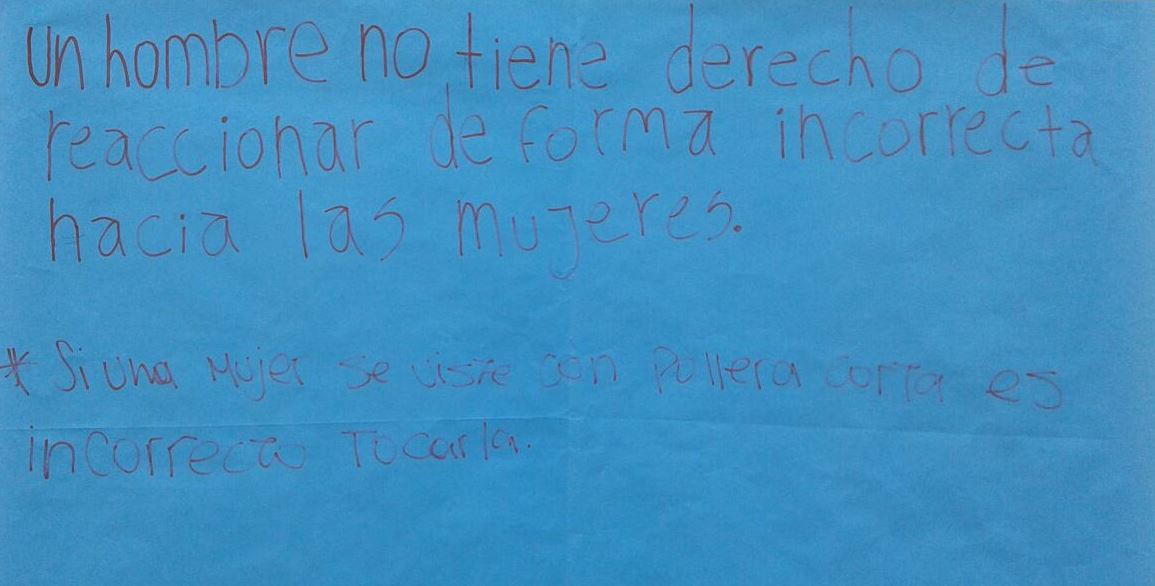 un hombre no tiene derecho de
reaccionar de forma incorrecta
hacia las mujeres.
* Si una Mujer se viste con Pollera corta es
incorrecto Tocarla.